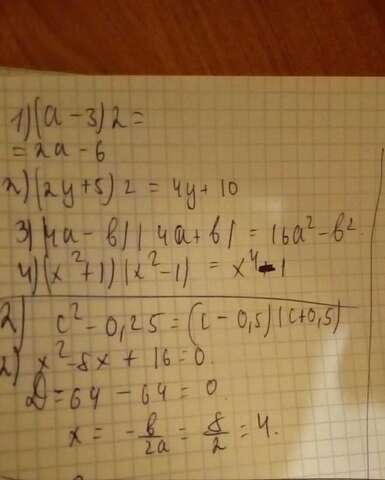 1) (a - 3) 2 =
= 2a - 6
2) (2y + 5) 2 = 4y + 10
3) (4a - b) ( 4a + b) = 16a² - b².
4) (x² + 1) (x² - 1) = x⁴ - 1
2) c² - 0,25 = (c - 0,5) (c + 0,5)
2) x² - 8x + 16 = 0.
D = 64 - 64 = 0.
x = - b/2a = 8/2 = 4.